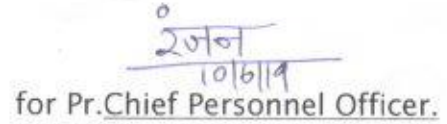 रंजन
10/6/19
for Pr.Chief Personnel Officer.